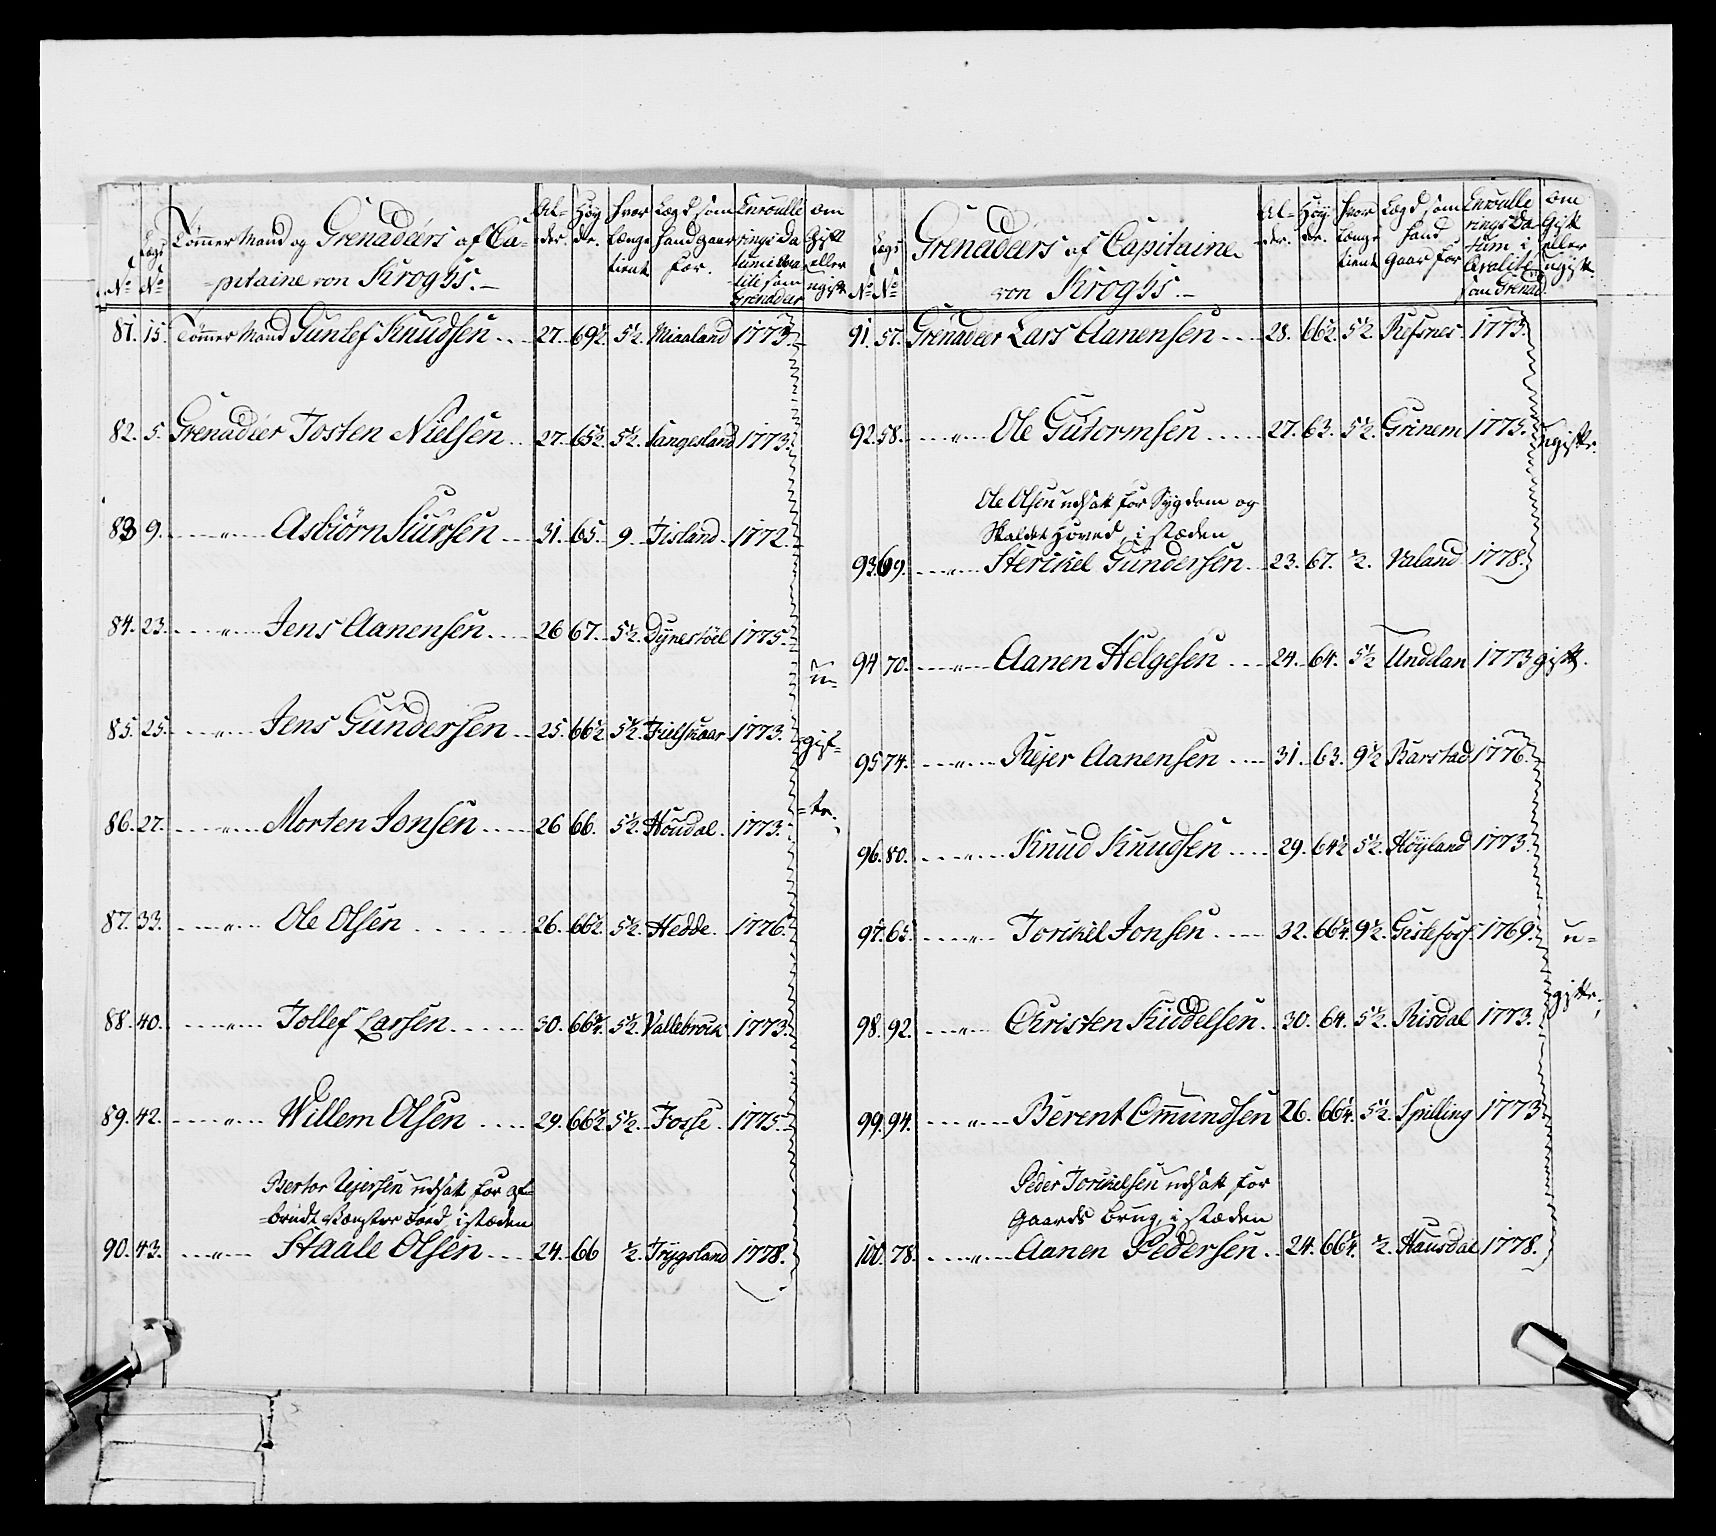 No
Lægs No
Tømmer Mand og Grenadeers af Ca-
pitaine von Kroghs.-
Al- der.
Høy de.
Hvor længe tient
Lægd som hand gaar for.
Enroulle rings Da tum i Qva lite som Grenadeer
om Gift eller ugift
81. 15. Tømmer Mand Gunlef Knudsen ... 27. 69½ 5½. Miaaland 1773.
82. 5. Grenadeer Josten Nielsen .. 27. 65½. 5½. Langesland 1773.
83 9. ---"--- Asbiørn Siursen ... 31. 65. 9 Tisland. 1772.
84. 23. ---"--- Jens Aanensen ... 26 67. 5½. Dynestöel 1775.
85. 25. ---"--- Jens Gundersen .. 25. 66½ 5½. Fielskaar 1773.
86. 27. ---"--- Morten Jonsen .... 26 66. 5½. Houdal. 1773.
87. 33. ---"--- Ole Olsen ...... 26. 66½. 5½. Hedde. 1776.
88. 40. ---"--- Tollef Larsen ..... 30. 66¼. 5½. Vallebroik 1773.
89. 42. ---"--- Willem Olsen .... 29. 66½ 5½. Fosse. 1775.
u-
gif-
te.
Bertor Rejersen udsatt for af-
brudt venster Been, i stæden
90. 43. ---"--- Staale Olsen ... 24. 66 ½. Trygsland 1778.
No
Lægs No
Grenadeers af Capitaine
von Kroghs.-
Al- der.
Høy de.
Hvor længe tient
Lægd som hand gaar for
Enroulle rings Da tum i Qvalite som Grenad.
om Gift eller ugift.
91. 57. Grenadeer Lars Aanensen .... 28. 66½. 5½. Refsnes 1773.
92. 58. ---"--- Ole Gutormsen ..... 27. 63. 5½. Grinem 1773. ugifte.
Ole Olsen udsatt for Sygdom og
Skaldet Hoved, i stæden
93. 69. ---"--- Sterckel Gundersen .. 23. 67. ½. Valand 1778.
94 70. ---"--- Aanen Helgesen ... 24. 64. 5½ Unddan 1773 gift.
95 74. ---"--- Rejer Aanensen .... 31. 63. 9½ Barstad 1776.
96. 80. ---"--- Knud Knudsen .... 29. 64½ 5½. Høyland 1773.
97. 65. ---"--- Torckel Jonsen .... 32. 66¼. 9½. Gislefoss 1769.
98. 92. ---"--- Christen Kiddelsen. 30. 64. 5½. Risdal 1773.
u-
gifte.
99. 94. ---"--- Berent Omundsen 26. 66¼. 5½. Spilling 1773
Peder Torckelsen udsatt for
Gaards Brug, i stæden
100. 78. ---"--- Aanen Pedersen .. 24. 66¼. ½. Hausdal 1778.